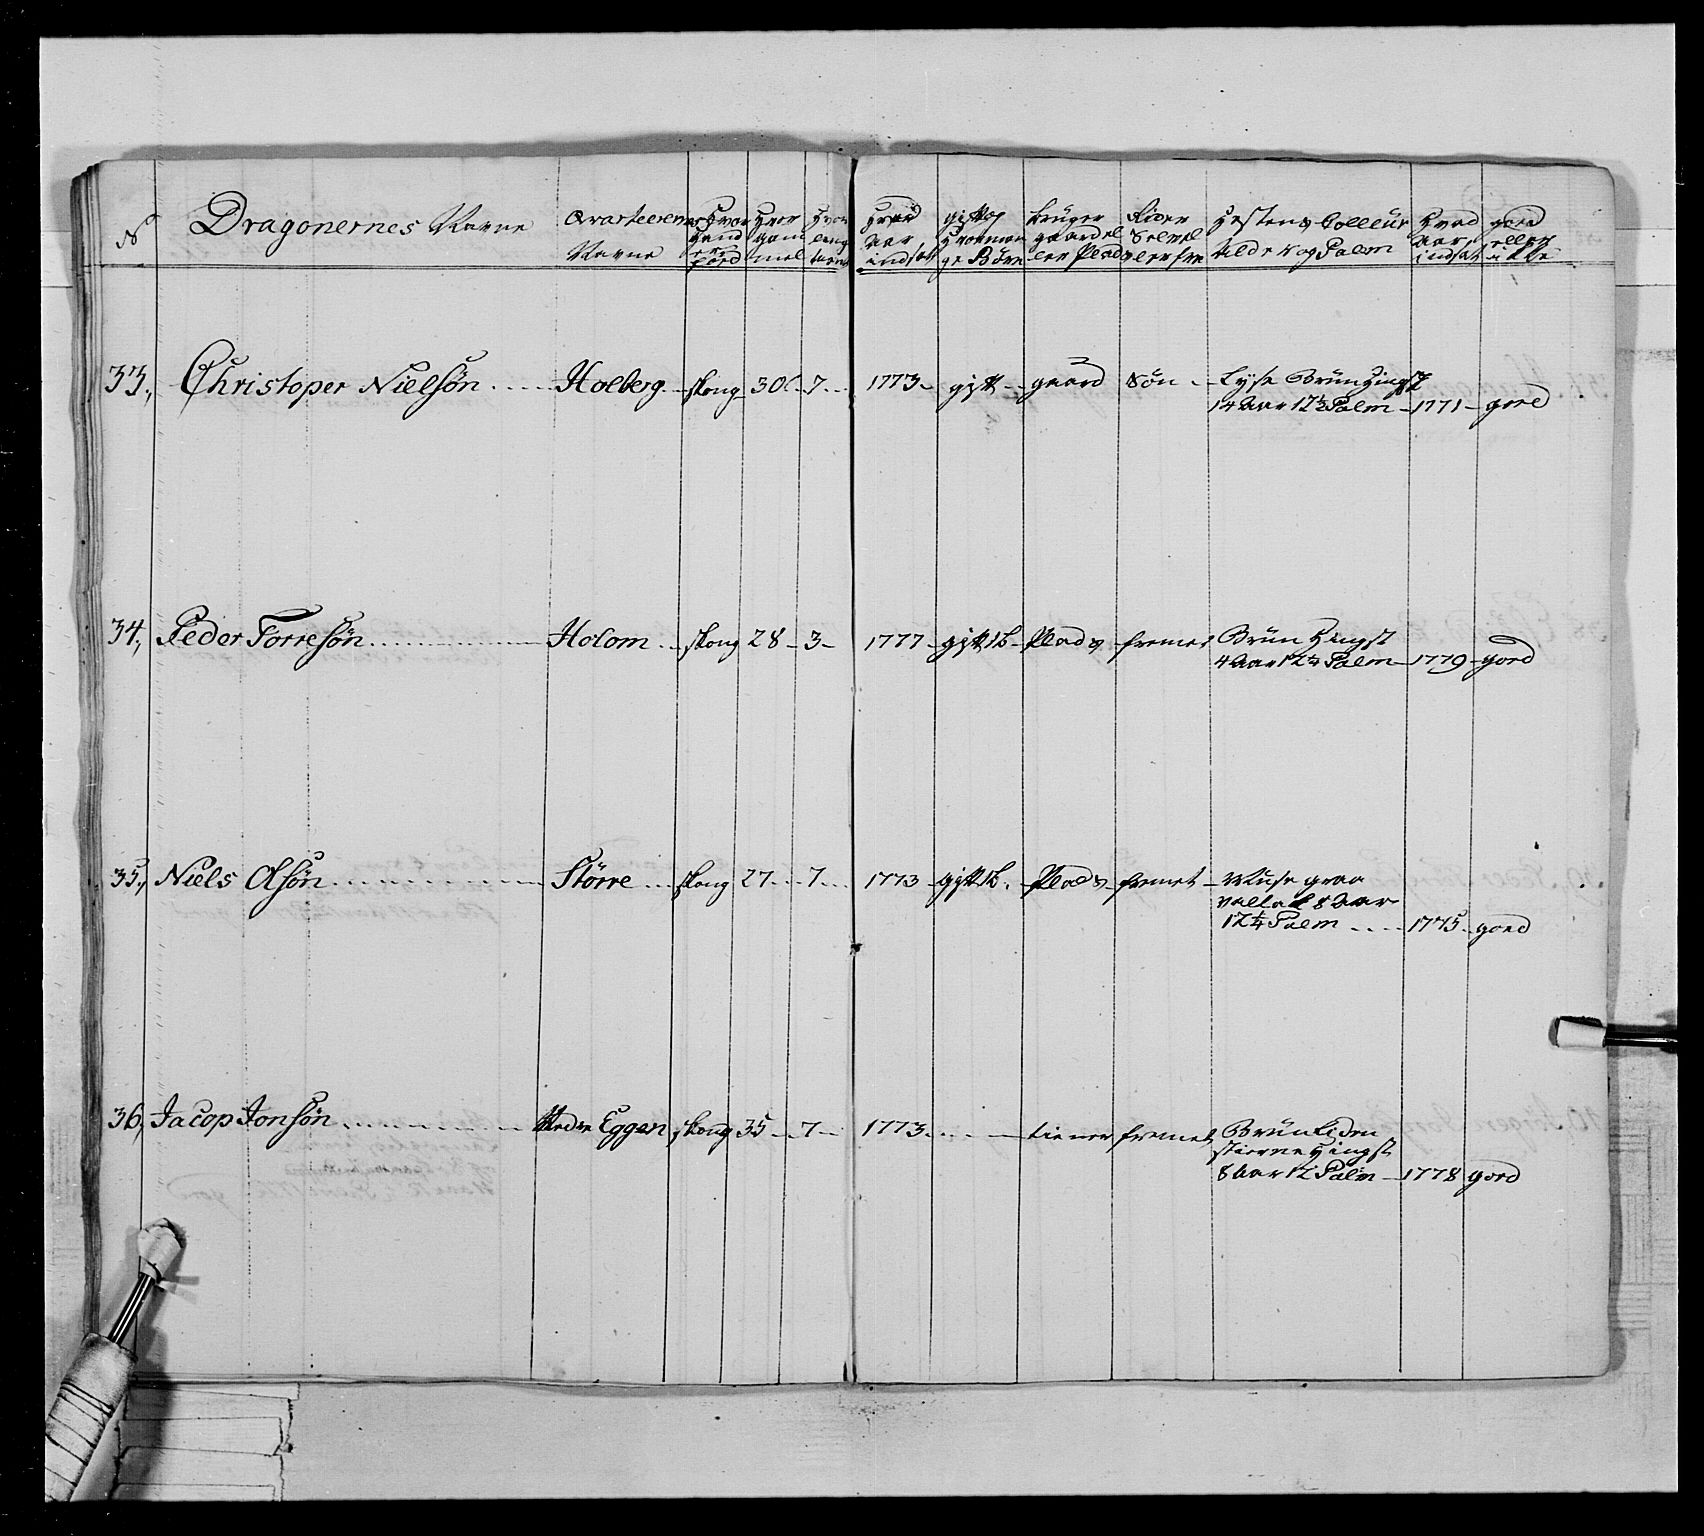 N Dragonernes Navne Qvarteerenes Navne Hvor Hand er förd Hvor gam mel Hvor leng tient Hvad Aar indsat gift og Hvor man ge Börn bruger gaard el ler Plads Hestens Colleur Alder og Palm Hvad Aar indsat goed eller ikke
33, Christoper Nielsön Holberg skong 30 7 1773 gift gaard Sön Lyse Brün Hingst
14 Aar 12½ Palm 1771 goed
34, Peder Torresön Holom skong 28 3 1777 gift 1b Plads fremet Brün Hingst
4 Aar 12¼ Palm 1779 goed
35, Niels Olsön Större skong 27 7 1773 gift 1b Plads fremet Muse graa
Vallak 8 Aar
12¼ Palm 1775 goed
36, Jacop Jonsön Nedre Eggen skong 35 7 1773 tiener fremet Brün liden
stierne Hingst
8 Aar 12 Palm 1778 goed